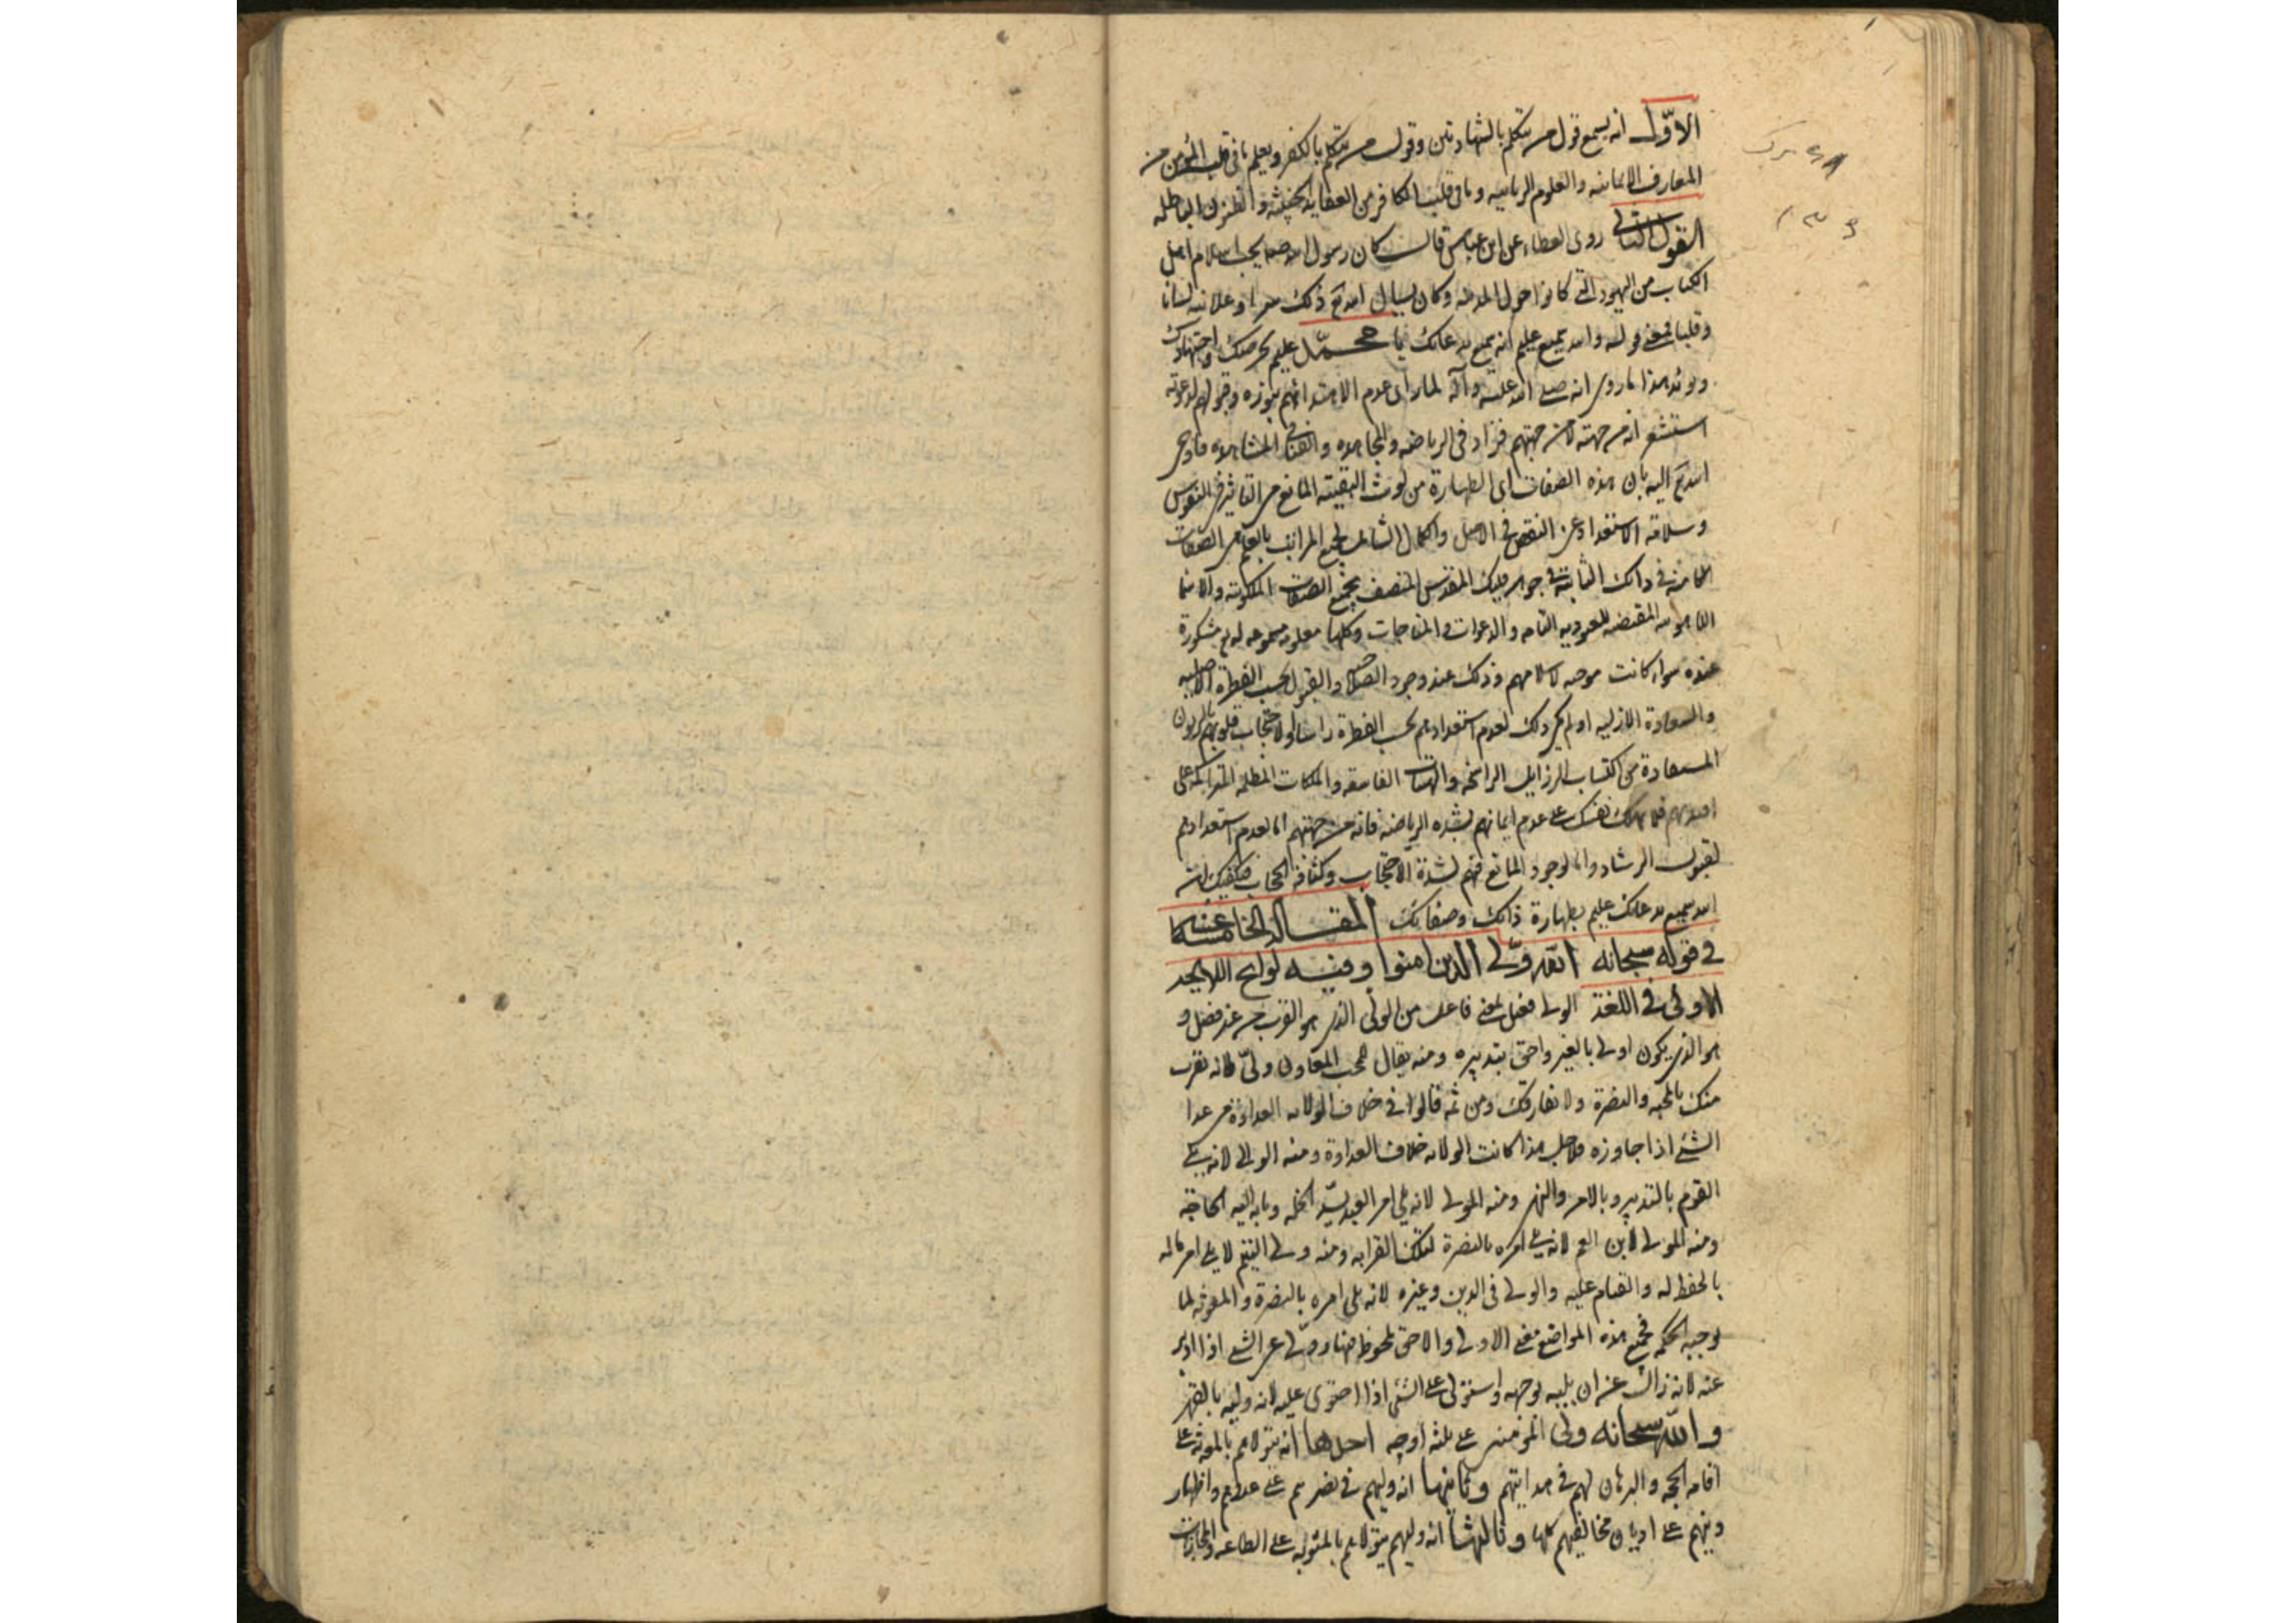 الاوّل انه يسمع قول من يتكلم بالشهادتين وقول من يتكلم بالكفر ويعلم ما في قلب المؤمن من
المعارف الايمانيه والعلوم الربانيه وما في قلب الكافر من العقايد الخبيثه و الباطله
القول الثانى روى العطاء عن ابن عباس قال كان رسول الله صلعم يحب اسلام اهل
الكتاب من اليهود التى كانوا حول المدينه وكان يسأل الله تع ذلك سرا وعلانيه لسانا
وقلبا فمعنى قوله والله سميع عليم انه سميع بدعائك يا محمّد عليم بحرصك واجتهادك
ويؤيد هذا ما روى انه صلى الله عليه وآله لما راى عدم بنوره وقبولهم لدعوته
استشعر انه من جهته لا من جهتهم فزاد فى الرياضه والمجاهده والفنا فى المشاهده فاوحى
الله تع اليه بان هذه الصفات اى الطهارة من لوث البقيته المانع من التاثير فى النفوس
وسلامة الاستعداد عن النقص فى الاصل والكمال الشامل لجميع المراتب من الصفات
الكامنة فى ذاتك الثابتة فى جوهر المقدس المتصف بجميع الصفات الملكوتيه
المقتضيه للعبوديه التامه والدعوات والمناجات وكلها معلومه مسموعه لديه مشكورة
عنده سواء كانت موجبه لاسلامهم وذلك عند وجود والقبول بحسب الفطرة الاصليه
والسعادة الازليه او لم يكن ذلك لعدم استعدادهم بحسب الفطرة راسا او لاحتجاب قلوبهم بالريون
المستفادة من اكتساب الرذايل الراسخه والهيئات الفاسقه والملكات المظلمه المتراكمه على
افئدتهم فلا تهلك نفسك على عدم ايمانهم بشده الرياضه فانه من جهتهم اما لعدم استعدادهم
لقبول الرشاد واما لوجود المانع فيهم لشدة الاحتجاب وكثافة الحجاب
الله سميع بدعائك عليم بطهارة ذاتك وصفاتك المقالة الخامسة
فى قوله سبحانه الله ولى الذين امنوا وفيه لوايح
الاولى فى اللغة الولى فعيل بمعنى فاعل من الولى الذى هو القرب من غير فصل و
هو الذى يكون اولى بالغير واحق بتدبيره ومنه يقال للمحب المعاون ولىّ لانه يقرب
منك بالمحبه والنصرة ولا يفارقك ومن ثمه قالوا فى خلاف الولايه العداوة من عدا
الشئ اذا جاوزه فلاجل هذا كانت الولايه خلاف العداوة ومنه الوالى لانه يلى
القوم بالتدبير وبالامر والنهى ومنه المولى لانه يلى امر العبد بسد الخله وما به اليه الحاجة
ومنه المولى لابن العم لانه يلى امره بالنصرة لتلك القرابه ومنه ولى اليتيم لانه يلى امر ماله
بالحفظ له والقيام عليه والولى فى الدين وغيره لانه يلى امره بالنصرة والمعونه لما
توجبه الحكمه فجميع هذه المواضع معنى الاولى والاحق ملحوظ فيها وولى عن الشئ اذا ادبر
عنه لانه زال عن ان يليه بوجهه واستولى على الشئ اذا احتوى عليه لانه وليه بالقهر
والله سبحانه ولى المؤمنين على ثلثه اوجه احدها انه يتولاهم بالمعونه على
اقامه الحجه والبرهان لهم فى هدايتهم وثانيها انه وليهم فى نصرهم على عدوهم واظهار
دينهم على اديان مخالفيهم كلها وثالثها انه وليهم يتولاهم بالمثوبه على الطاعه والمجازات